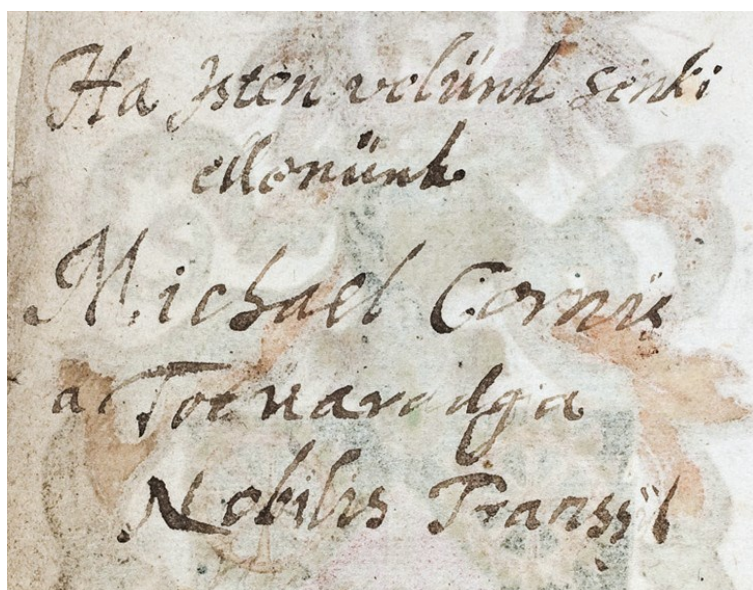 Ha Jsten velünk senki
ellenünk
Michael Cornis
a Totuaradgia
Nobilis Transsÿl